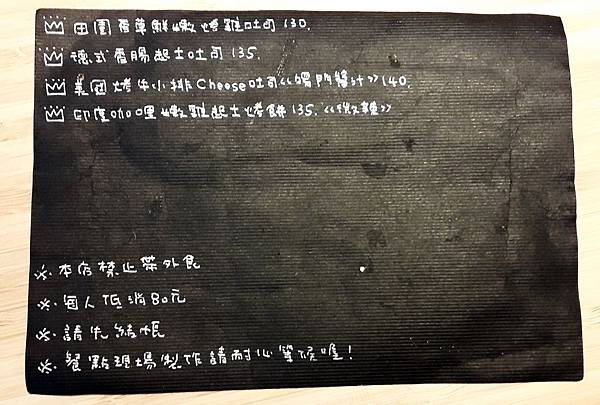 田園香草鮮嫩烤雞吐司130.
德式香腸起士吐司135.
美國烤牛小排Cheese吐司<<獨門醬汁>>140.
印度咖哩嫩雞起士烤餅135.<<微辣>>
※.本店禁止帶外食
※.每人低消80元
※.請先結帳
※.餐點現場製作請耐心等候喔!